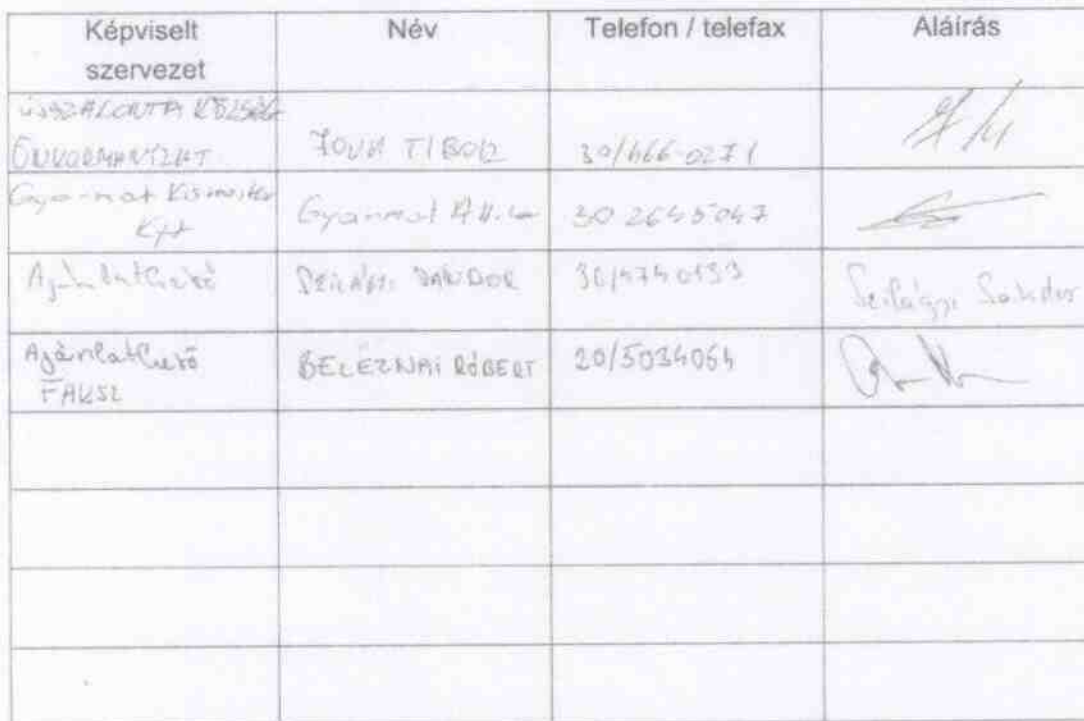 Képviselt szervezet
Név
Telefon / telefax
Aláírás
ÚJSZALONTA KÖZSÉG
ÖNKORMÁNYZAT
TIBOR
30/466-0271
Gyarmat
Kft
Gyarmat
30 2645047
Ajánlatkérő
SZILÁGYI SÁNDOR
30/4740193
Szilágyi Sándor
Ajánlatkérő
FAKSZ
BELÉZNAI RÓBERT
20/5034064